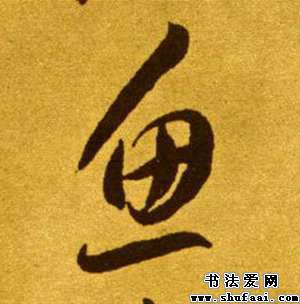 鱼
书法爱网
www.shufaai.com